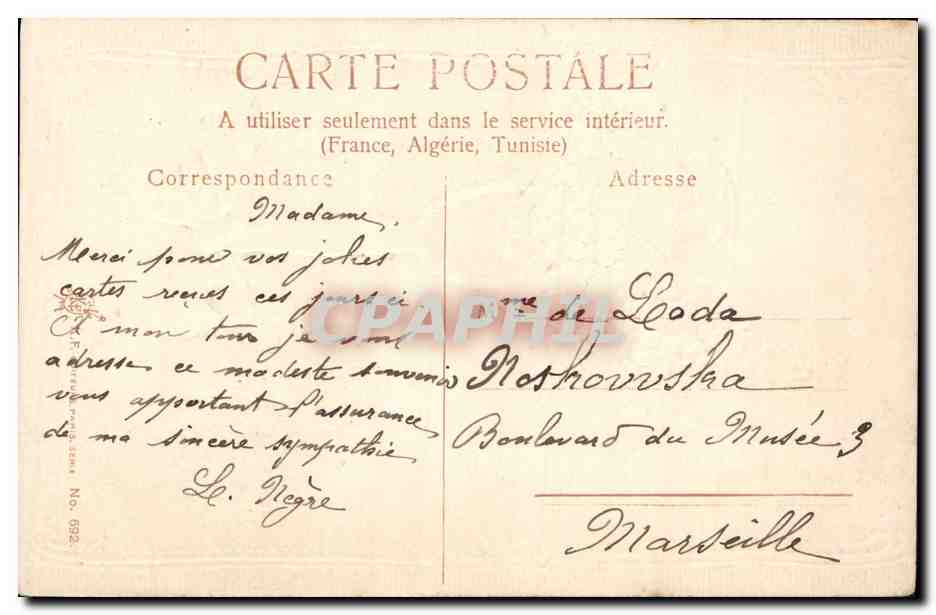 CARTE POSTALE
A utiliser seulement dans le service intérieur.
(France, Algérie, Tunisie)
Correspondance
Madame,
Merci pour vos jolies
cartes reçues ces jours ci
A mon tour je vous
adresse ce modeste souvenir
vous apportant l'assurance
de ma sincère sympathie
L. Nègre
Adresse
Mme de Loda
Noskowska
Boulevard du Musée 3
Marseille
PARIS-SERIE No. 692
CPAPHIL.com